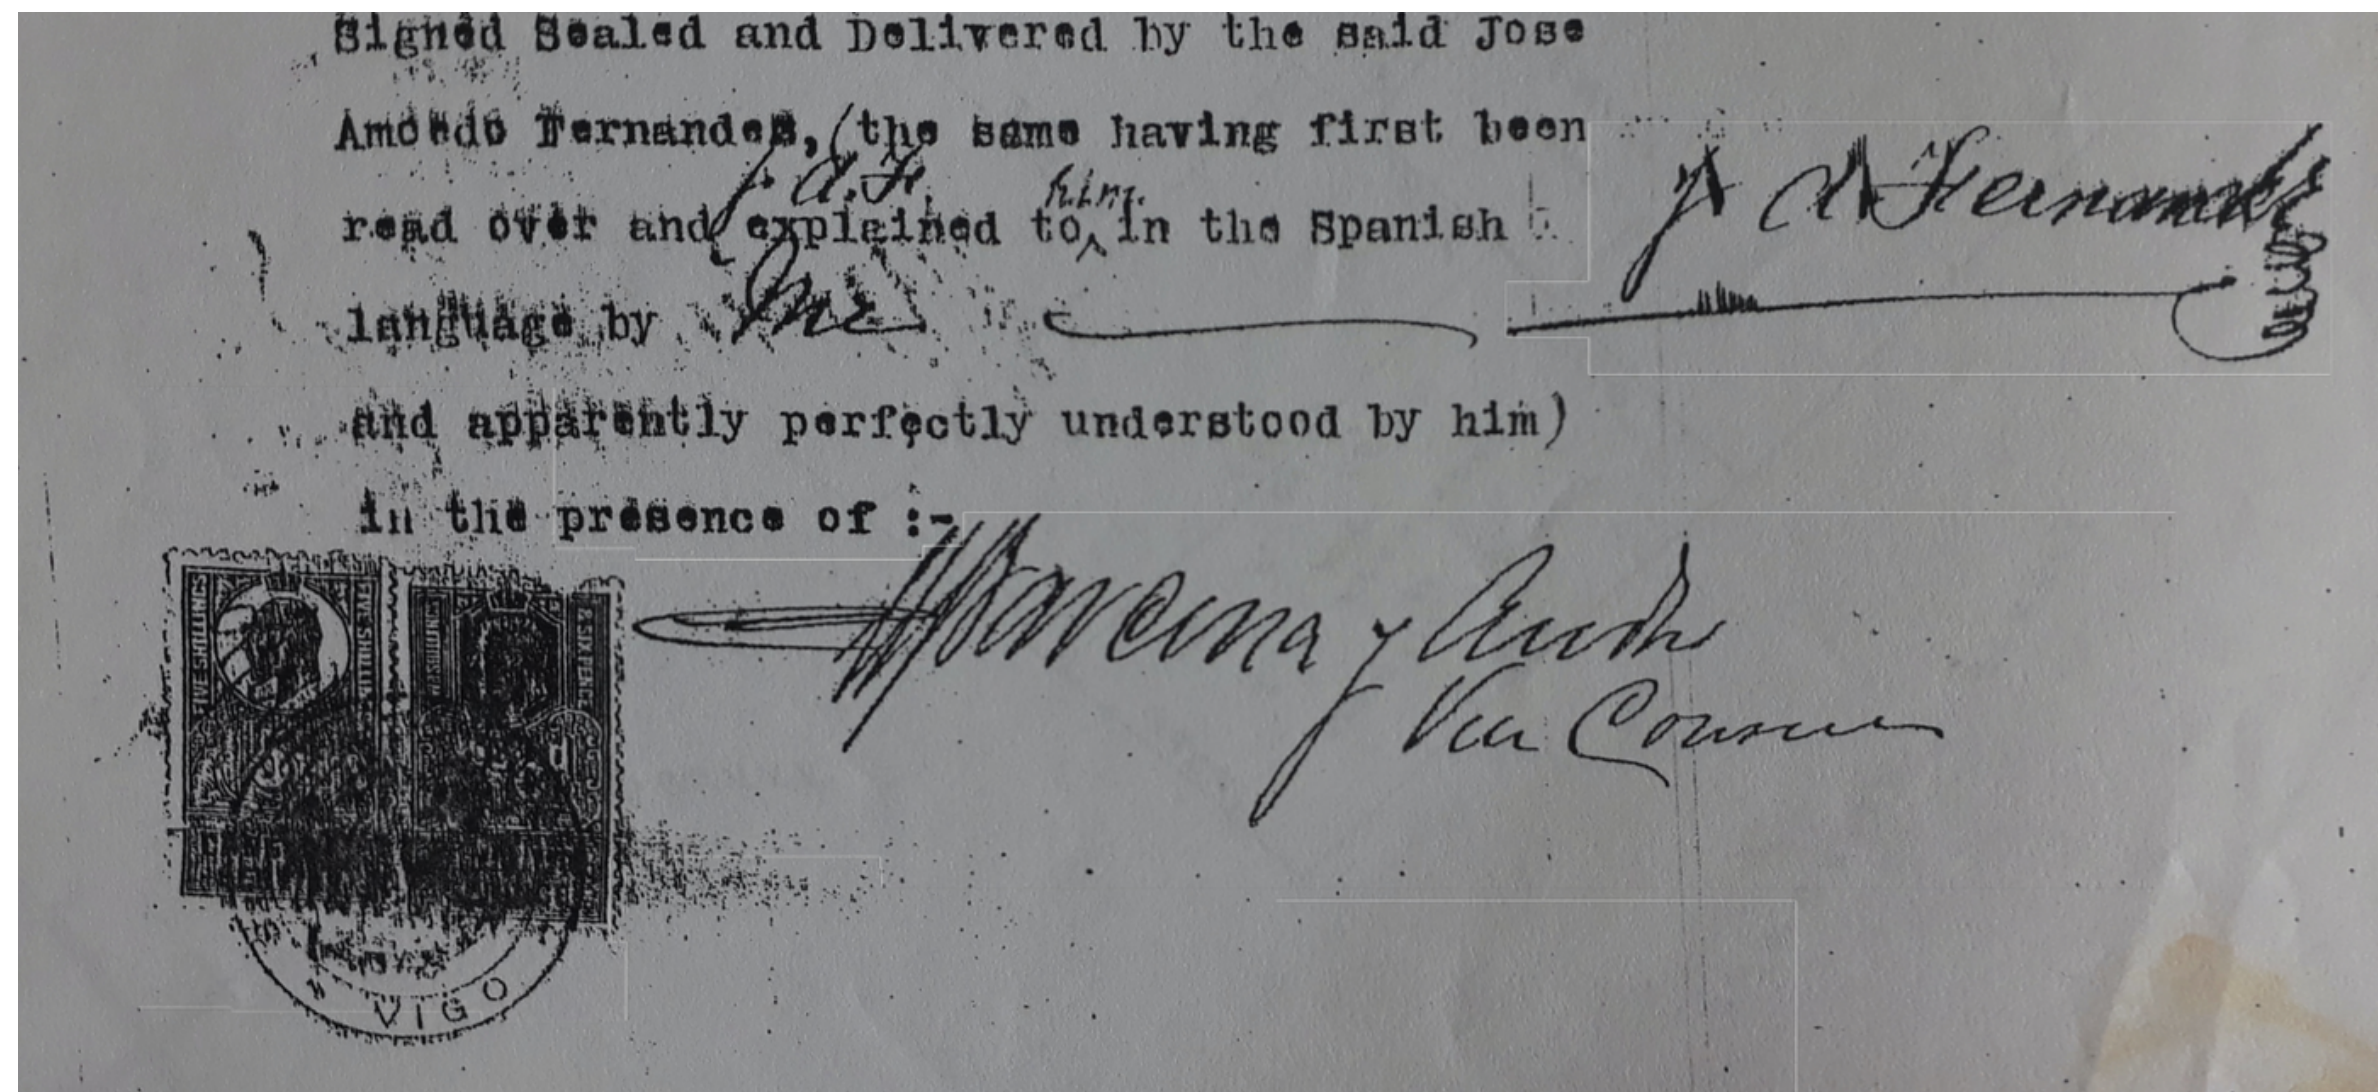 Signed Sealed and Delivered by the said Jose
Amoedo Fernandez, (the same having first been
J. A. F. him.
read over and explained to ^ in the Spanish
J A Fernandez
language by me
and apparently perfectly understood by him)
in the presence of :-
Barcena y
Vice Consul
FIVE SHILLINGS FIVE SHILLINGS
VIGO